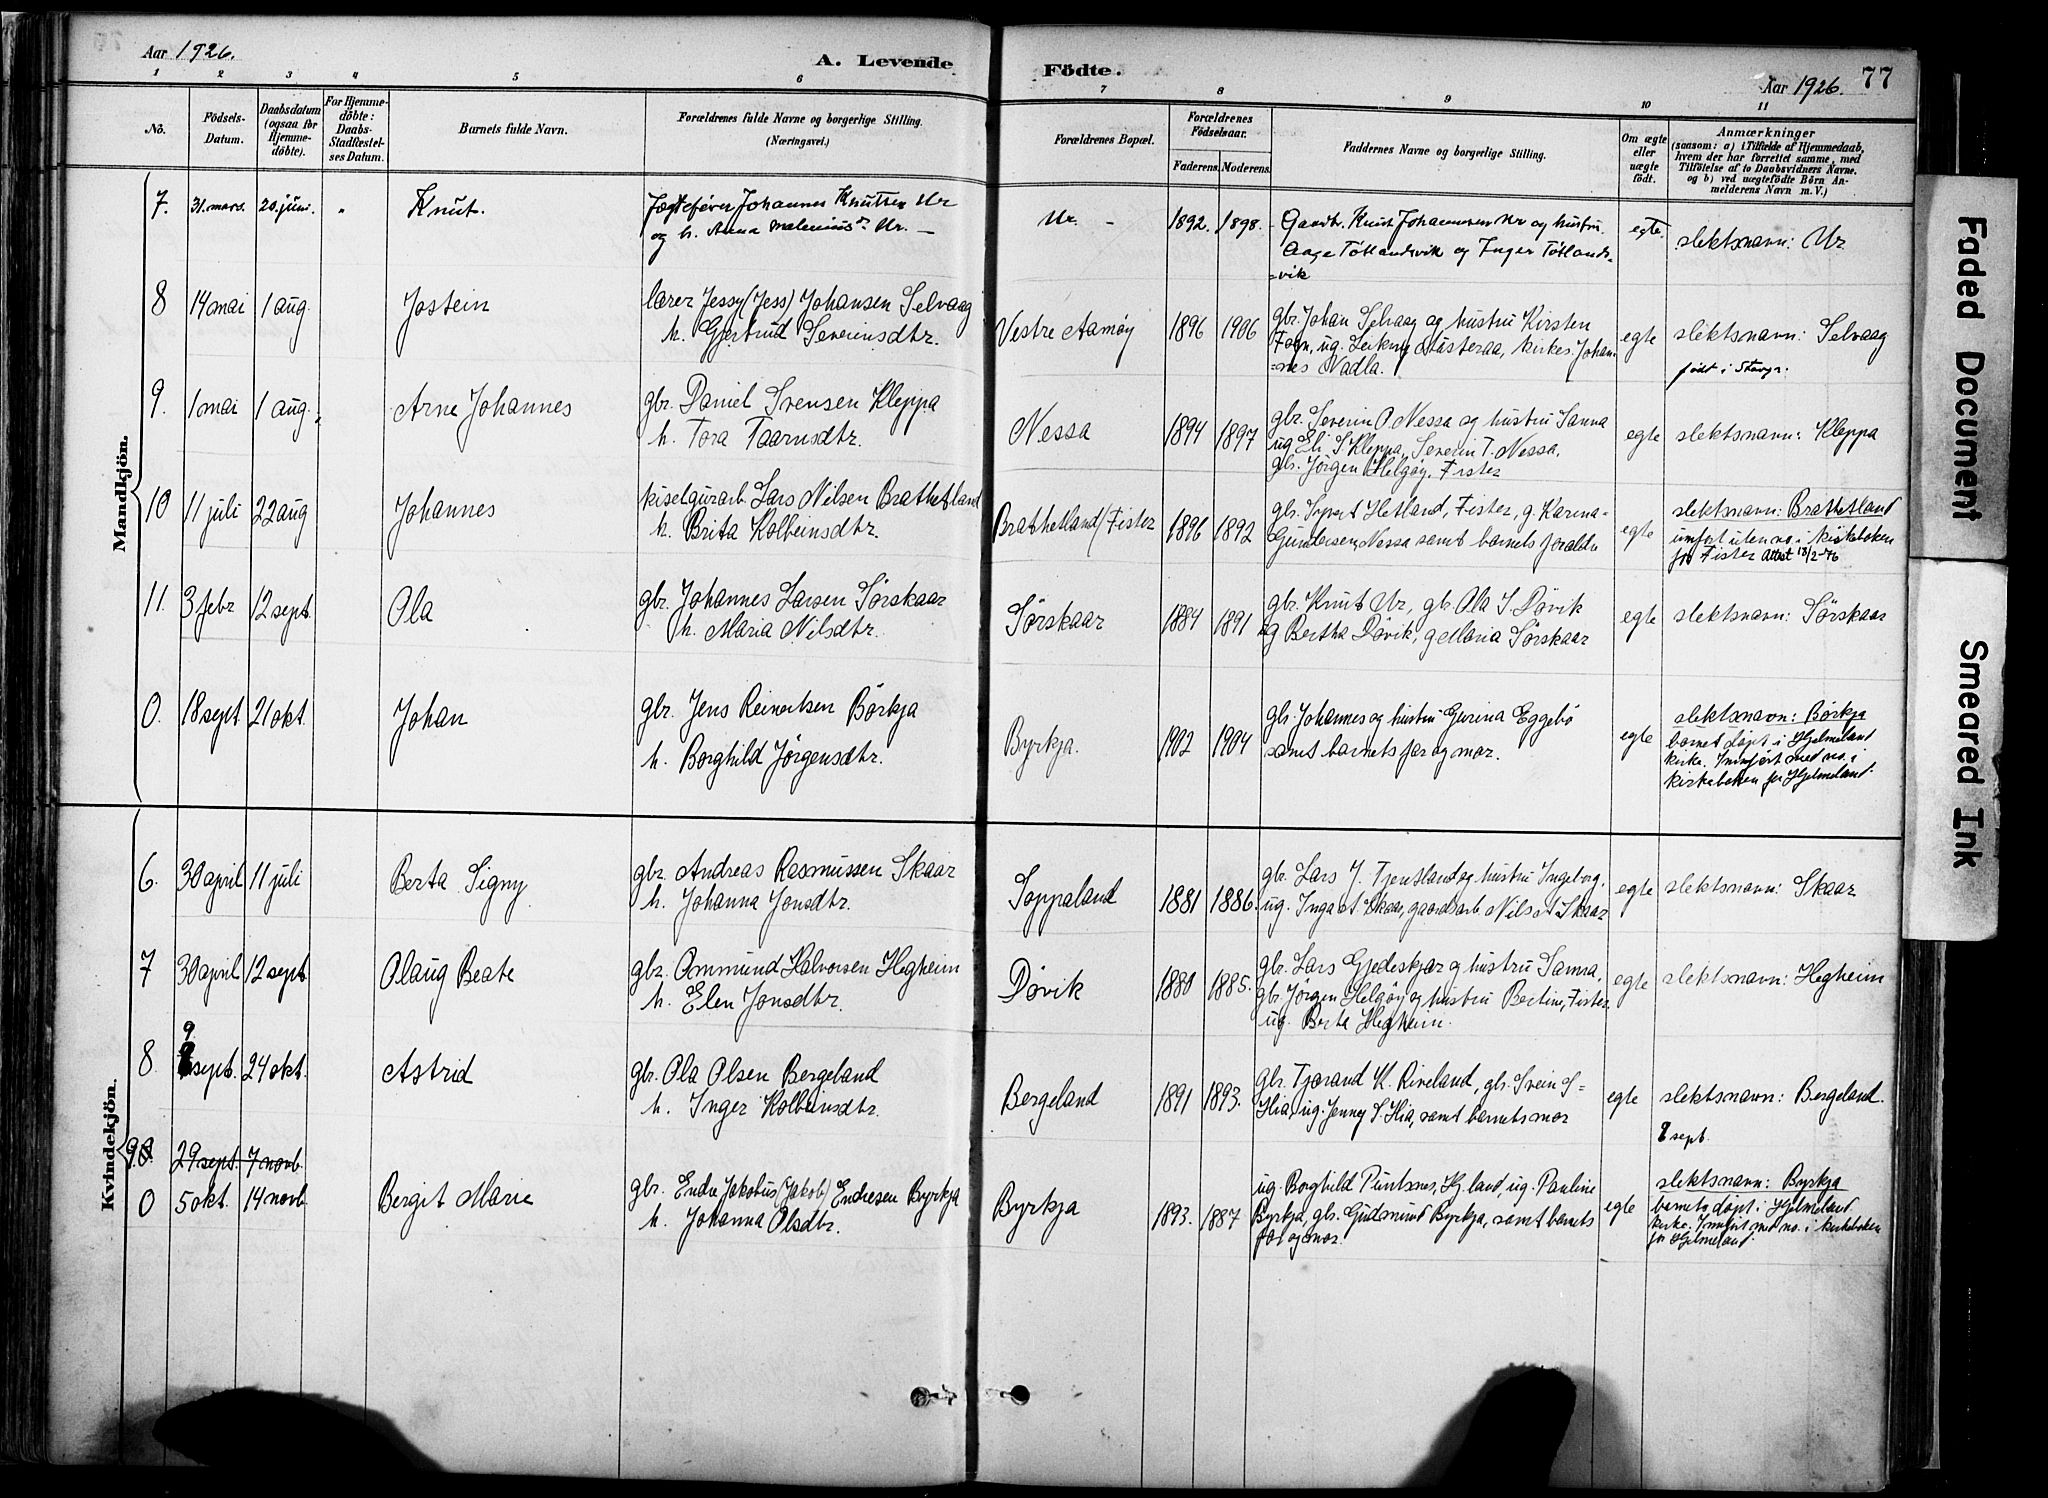 Aar 1926.
A. Levende
Födte.
Aar 1926. 77
1 2 3 4 5 6 7 8 9 10 11
No.
Födsels-Datum.
Daabsdatum (ogsaa for Hjemme-döbte).
For Hjemme-döbte: Daabs-Stadfæstel-ses Datum.
Barnets fulde Navn.
Forældrenes fulde Navne og borgerlige Stilling. (Næringsvei.)
Forældrenes Bopæl.
Forældrenes Födselsaar.
Faderens. Moderens.
Faddernes Navne og borgerlige Stilling.
Om ægte eller uægte födt.
Anmærkninger
(saasom: a) i Tilfælde af Hjemmedaab,
hvem der har forrettet samme, med
Tilföielse af to Daabsvidners Navne.
og b) ved uægtefödte Börn An-
melderens Navn m. V.)
Mandkjön.
7. 31. mars. 20. juni. " Knut.
Jægtefører Johannes Knutsen Ur
og h. Anna Maleniusdr Ur. —
Ur. - 1892. 1898.
Gaardbr. Knut Johannessen Ur og hustru.
Aage Tötlandsvik og Inger Tötlands-
=vik
egte.
slektsnavn: Ur
8 14 mai 1 aug. Jostein
lærer Jessy (Jess) Johansen Selvaag
h. Gjertrud Severinsdtr.
Vestre Aamøy 1896 1906
gbr. Johan Selvaag og hustru Kirsten
Fogn, ug. Austeraa, kirkes. Johan-
=nes Nadla.
egte
slektsnavn: Selvaag
født i Stavgr.
9. 1 mai 1 aug. Arne Johannes
gbr. Daniel Svensen Kleppa
h. Tora Taarnsdtr.
Nessa 1894 1897
gbr. Severin O. Nessa og hustru Sanna
ug. Eli S. Kleppa, Severin T. Nessa,
gbr. Jörgen Helgöy, Fister
egte
slektsnavn: Kleppa
10 11 juli 22 aug Johannes
kiselgurarb. Lars Nilsen Brathetland
h. Brita Kolbeinsdtr.
Brathetland/Fister 1896 1892
gbr. Sivert Hetland, Fister, g. Karina
Gundersen, Nessa samt barnets foreldre
egte
slektsnavn: Brathetland
innført uten no. i kirkeboken
for Fister Attest 18/2-76
11. 3 febr 12 sept. Ola
gbr. Johannes Larsen Sørskaar
h. Maria Nilsdtr.
Sørskaar 1884 1891
gbr. Knut Ur, gbr. Ola S. Døvik
og Bertha Døvik, g Maria Sørskaar
egte
slektsnavn: Sørskaar
0. 18 sept. 21 okt. Johan
gbr. Jens Reinertsen Börkja
h. Borghild Jörgensdtr.
Byrkja. 1902 1904
gbr. Johannes og hustru Gurina Eggebö
samt barnets far og mor.
egte
slektsnavn: Børkja
barnet døpt i Hjelmeland
kirke. Innført med no. i
kirkeboken for Hjelmeland.
Kvindekjön.
6. 30 april 11 juli Berta Signy
gbr. Andreas Rasmussen Skaar
h. Johanna Jonsdtr.
Soppaland 1881 1886.
gbr. Lars J. Tjentland og hustru Ingeborg,
ug. Inga A Skaar, gaardsarb. Nils A Skaar
egte
slektsnavn: Skaar
7 30 april 12 sept Olaug Beate
gbr. Ommund Halvorsen Hegheim
h. Elen Jonsdtr.
Døvik 1880 1885.
gbr. Lars Gjedeskjær og hustru Sanna,
gbr. Jörgen Helgöy og hustru Bertine, Fister
ug. Berta Hegheim.
egte
slektsnavn: Hegheim
9
8. 8 sept. 24 okt. Astrid
gbr. Ola Olsen Bergeland
h. Inger Kolbeinsdtr.
Bergeland 1891 1893.
gbr. Tjærand K. Riveland, gbr. Svein S=
Hia, ug. Jenny S. Hia, samt barnets mor
egte
slektsnavn: Bergeland.
8 sept.
9. 29 sept. 7 novb.
0 5 okt. 14 novb Bergit Marie
gbr. Endre Jakobus (Jakob) Endresen Byrkja
h. Johanna Olsdtr.
Byrkja 1893. 1887
ug. Borghild Puntsnes, Hj.land, ug. Pauline
Byrkja, gbr. Gudmund Byrkja, samt barnets
far og mor.
egte
slektsnavn: Byrkja
barnets døpt i Hjelmeland
kirke. Innført med no. i kirkeboken
for Hjelmeland.
Faded Document
Smeared Ink